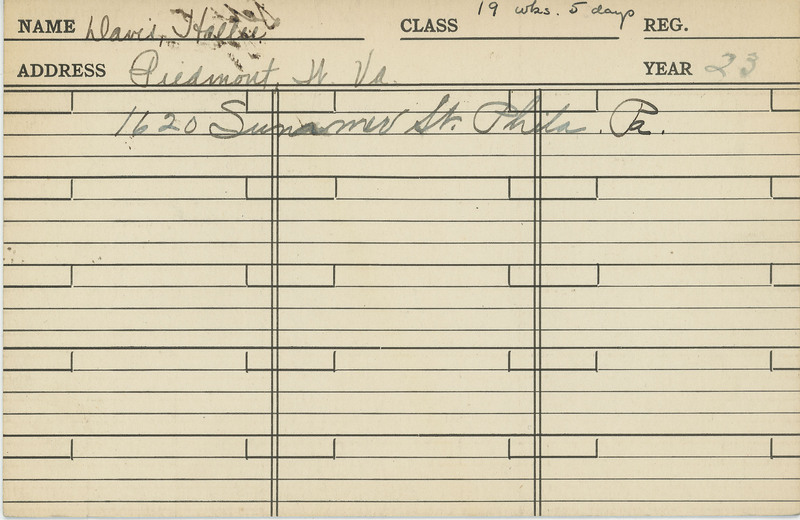 19 wks. 5 days
NAME Davis, Hallie CLASS REG.
ADDRESS Piedmont, W. Va. YEAR 23
1620 Summer St. Phila. Pa.